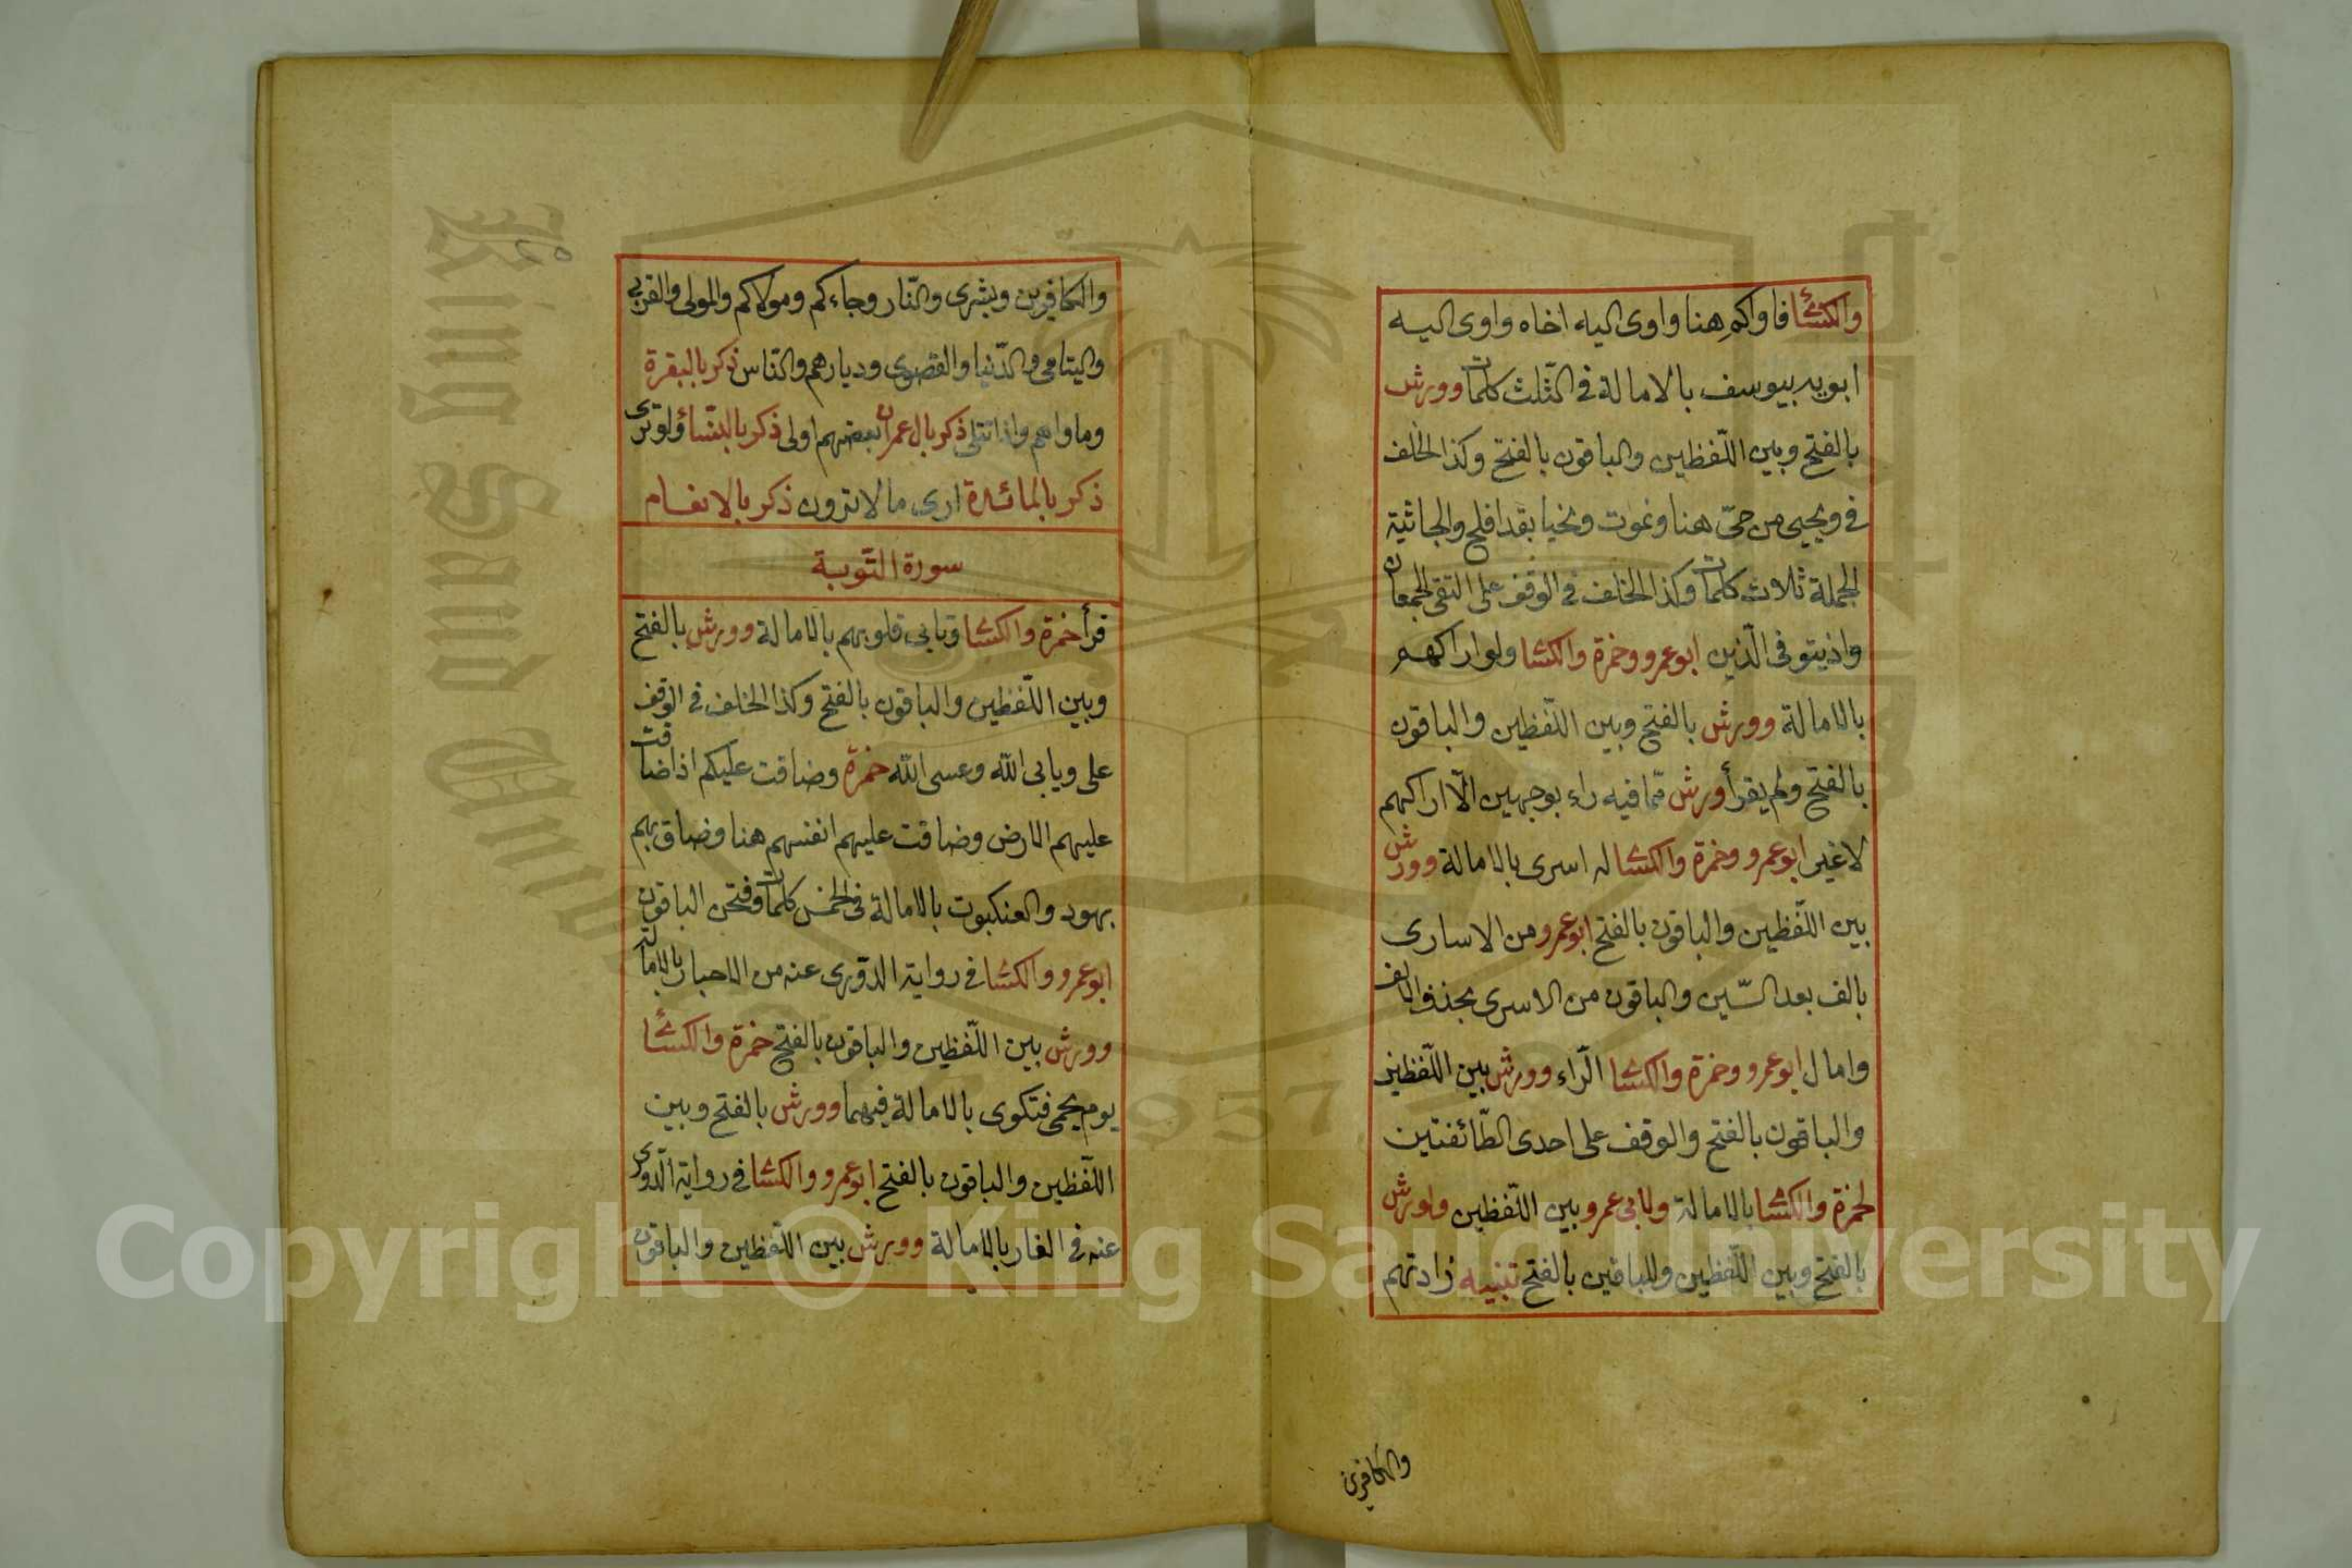 والكسائى فاواكم هنا واوى اليه اخاه واوى اليه
ابويه بيوسف بالامالة فى الثلث كلمات وورش
بالفتح وبين اللفظين والباقون بالفتح وكذا الخلف
فى ويحيى من حىّ هنا ونموت ونحيا بقد افلح والجاثية
الجملة ثلاث كلمات وكذا الخلف فى الوقف على التقى الجمعان
واذ يتوفى الّذين ابو عمرو وحمزة والكسا ولو اراكهم
بالامالة وورش بالفتح وبين اللفظين والباقون
بالفتح ولم يقرأ ورش ممّا فيه راء بوجهين الّا اراكهم
لا غير ابو عمرو وحمزة والكسا له اسرى بالامالة وورش
بين اللّفظين والباقون بالفتح ابو عمرو من الاسارى
بالف بعد السّين والباقون من الاسرى بحذف الالف
وامال ابو عمرو وحمزة والكسا الرّاء وورش بين اللّفظين
والباقون بالفتح والوقف على احدى الطّائفتين
لحمزة والكسا بالامالة ولابى عمرو بين اللّفظين ولورش
بالفتح وبين اللّفظين وللباقين بالفتح تنبيه زادتهم
والكافرين
والكافرين وبشرى والنّار وجاءكم ومولاكم والمولى والقربى
واليتامى والدّنيا والقصوى وديارهم والنّاس ذكر بالبقرة
وماواهم واذا تتلى ذكر بال عمران بعضهم اولى ذكر بالنسا ولو ترى
ذكر بالمائدة ارى ما لا ترون ذكر بالانعام
سورة التّوبة
قرأ حمزة والكسا وتابى قلوبهم بالامالة وورش بالفتح
وبين اللّفظين والباقون بالفتح وكذا الخلف فى الوقف
على ويابى الله وعسى الله حمزة وضاقت عليكم اذا ضاقت
عليهم الارض وضاقت عليهم انفسهم هنا وضاق بهم
بهود والعنكبوت بالامالة فى الخمس كلمات وفتحن الباقون
ابو عمرو والكسا فى رواية الدّورى عنه من الاحبار بالامالة
وورش بين اللّفظين والباقون بالفتح حمزة والكسائى
يوم يحمى فتكوى بالامالة فيهما وورش بالفتح وبين
اللّفظين والباقون بالفتح ابو عمرو والكسا فى رواية الدّورى
عنه فى الغار بالامالة وورش بين اللّفظين والباقون
King Saud University
1957
Copyright © King Saud University